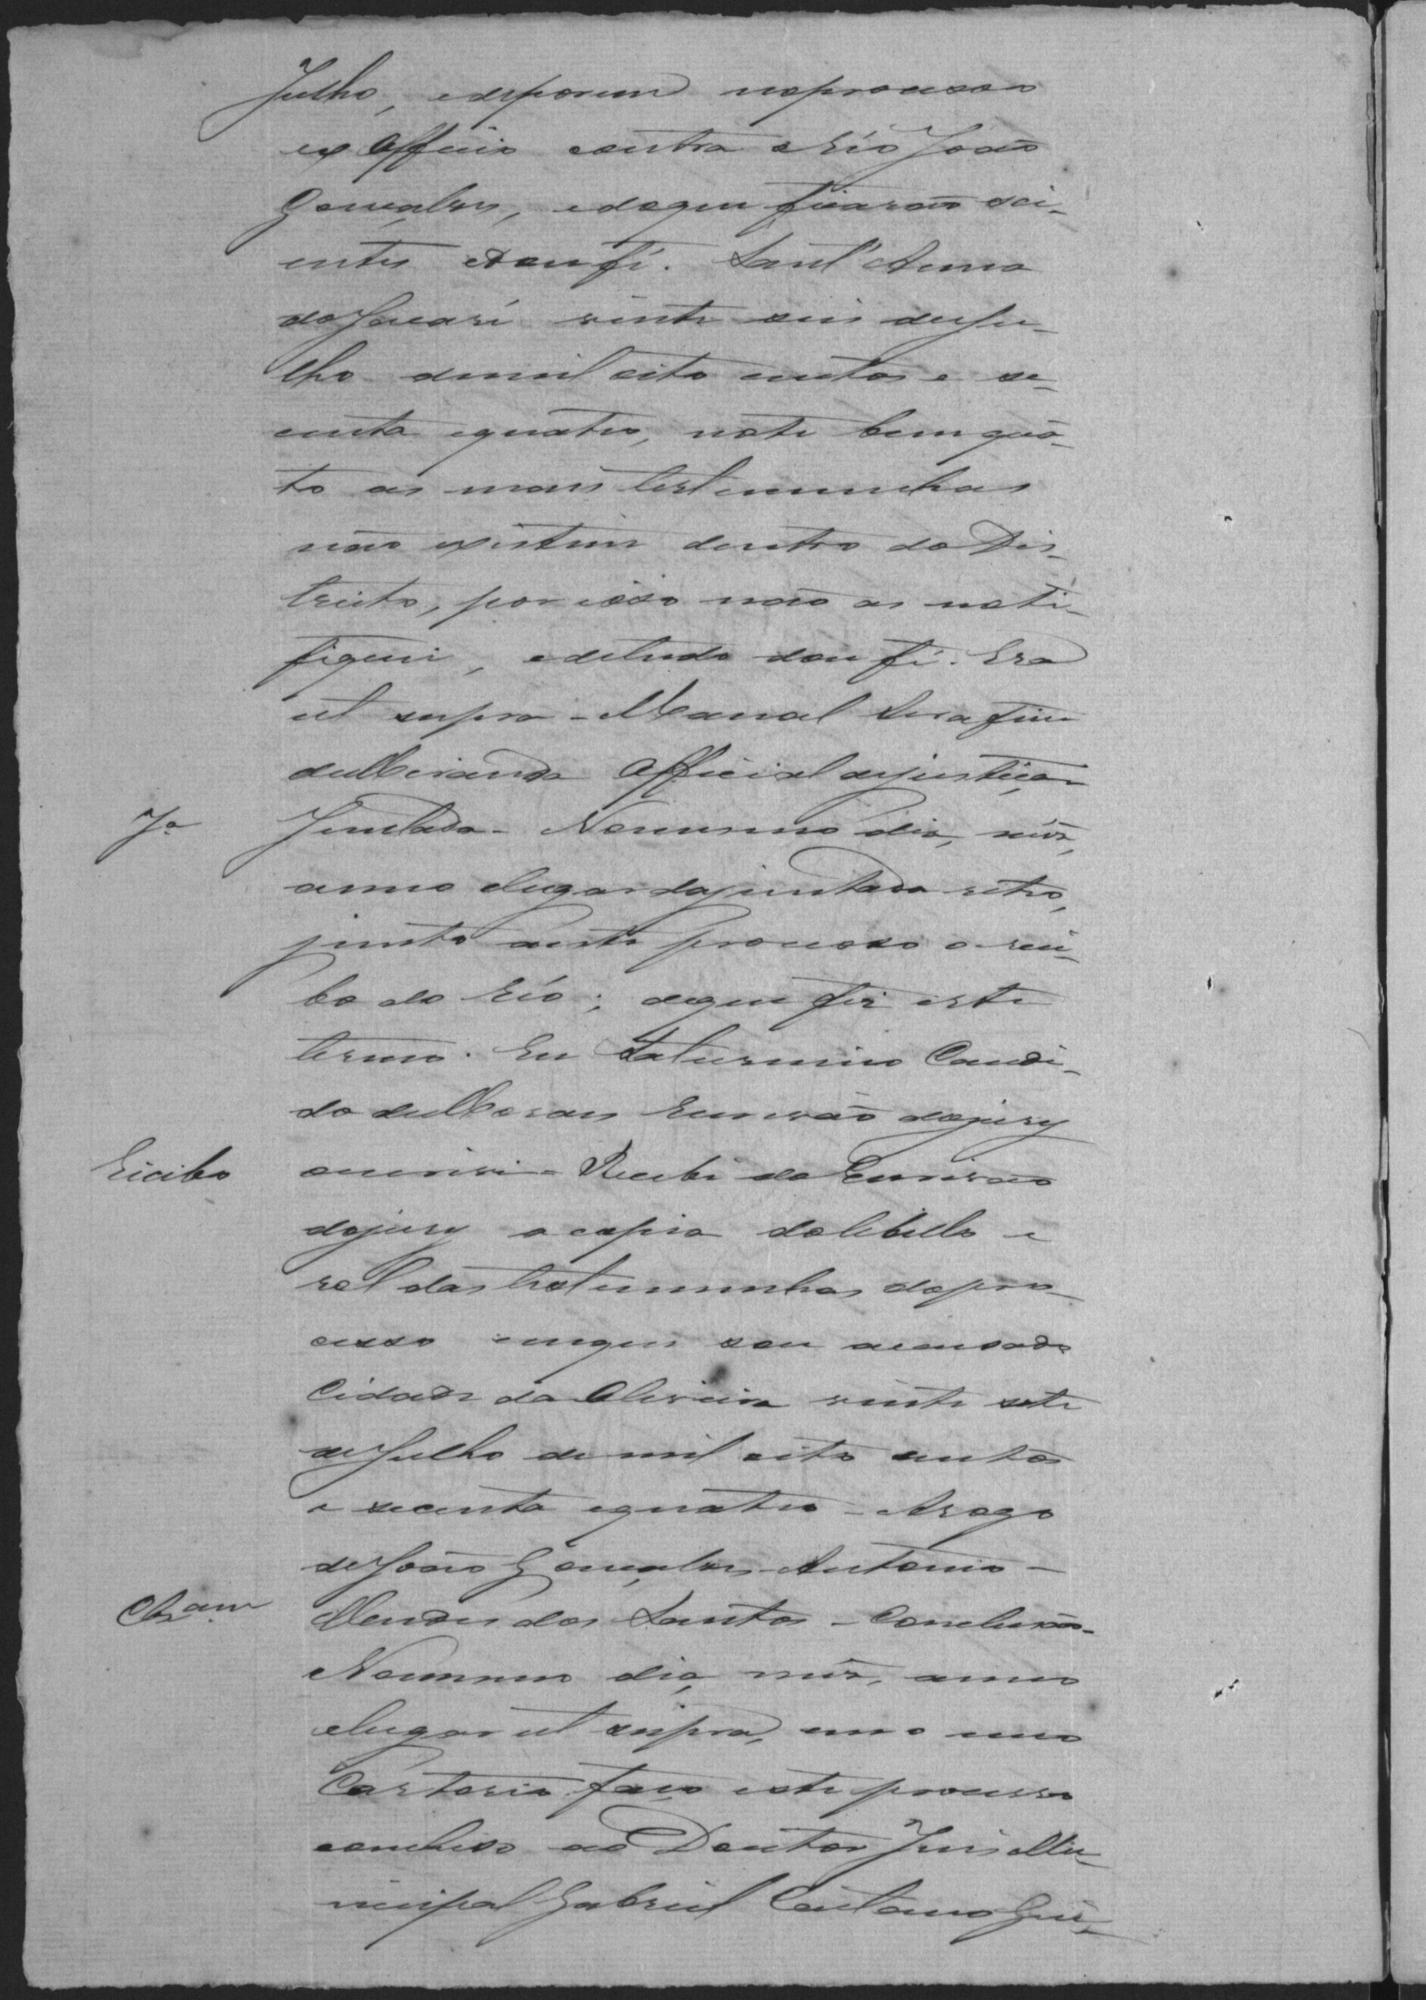 Julho, edeporem noprocesso
ex Officio contra o Réo João
Gonçalves, edeque ficarão sci-
entes edou fé. Sant'Anna
do Jacaré vinte seis de Ju-
lho demil oito centos e se-
centa equatro, note bem quan-
to as mais testemunhas
não existem dentro do Dis-
tricto, por isso não as noti-
fiquei, edetudo dou fé. Era
ut supra - Manoel Serafim
de Miranda Official dejustiça
Ja Juntada - Nomesmo dia, mês,
anno elugar dajuntada retro,
junto aeste processo o reci-
bo do Réo; deque fiz este
termo. Eu Saturnino Candi-
do de Moraes Escrivão dojury
Recibo oescrevi - Recebi do Escrivão
dojury a copia dolibello e
rol das testemunhas dopro-
cesso emque sou accusado
Cidade da Oliveira vinte sete
de Julho de mil oito centos
e secenta equatro - Arogo
de João Gonçalves - Antonio -
Clzam Mendes dos Santos - Conclusão -
Nomesmo dia, mês, anno
elugar ut supra, em o meu
Cartorio faço este processo
concluso ao Doutor Juis Mu-
nicipal Gabriel Caetano Gui-